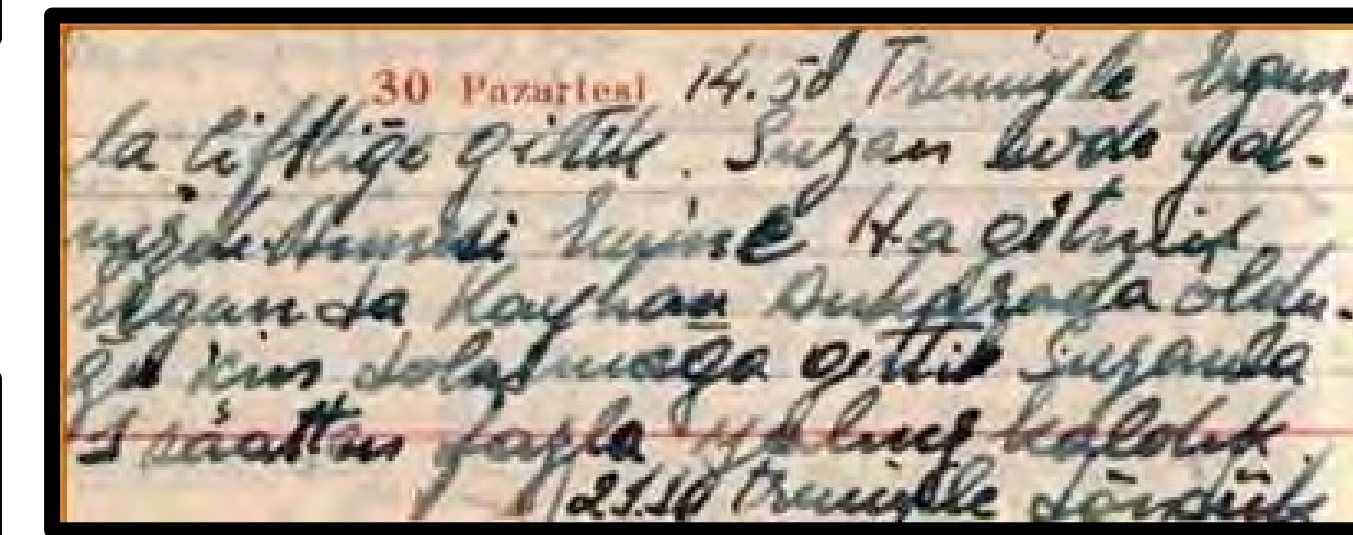 30 Pazartesi 14.50 Treniyle Ergun-
la Çiftliğe gittik. Suzan evde yal-
nızdı Emine H.a gitmiş.
Ergun da Kayhan Ankarada oldu-
ğu için dolaşmağa gitti Suzanla
saatten fazla yalnız kaldık.
Treniyle döndük